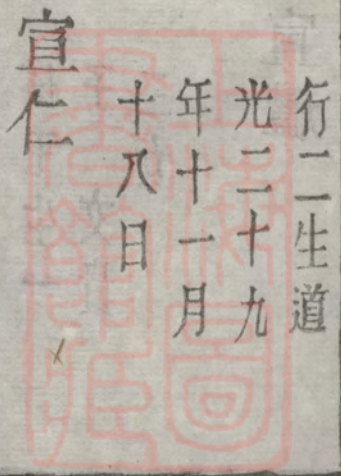 行二生道
光二十九
年十一月
十八日
宣仁